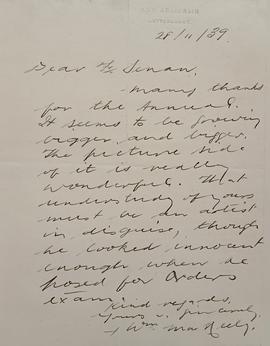 28/11/39.
Dear Fr Senan,
Many thanks
for the Annual.
It seems to be growing
bigger and bigger.
The picture side
of it is really
wonderful. That
understudy of yours
must be an artist
in disguise, though
he looked innocent
enough when he
posed for Orders
exam.
Kind regards,
Yours v. sincerely,
+ Wm MacNeely.